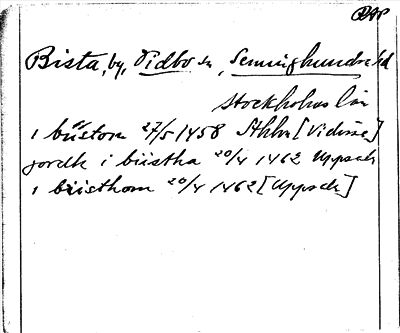 RAP
Bista, by, Vidbo sn, Seminghundra hd
Stockholms län
i büstom 27/5 1458 Sthlm [Vidisse]
jordh i biistha 20/4 1462 Uppsala
i biisthom 20/4 1462 [Uppsala]